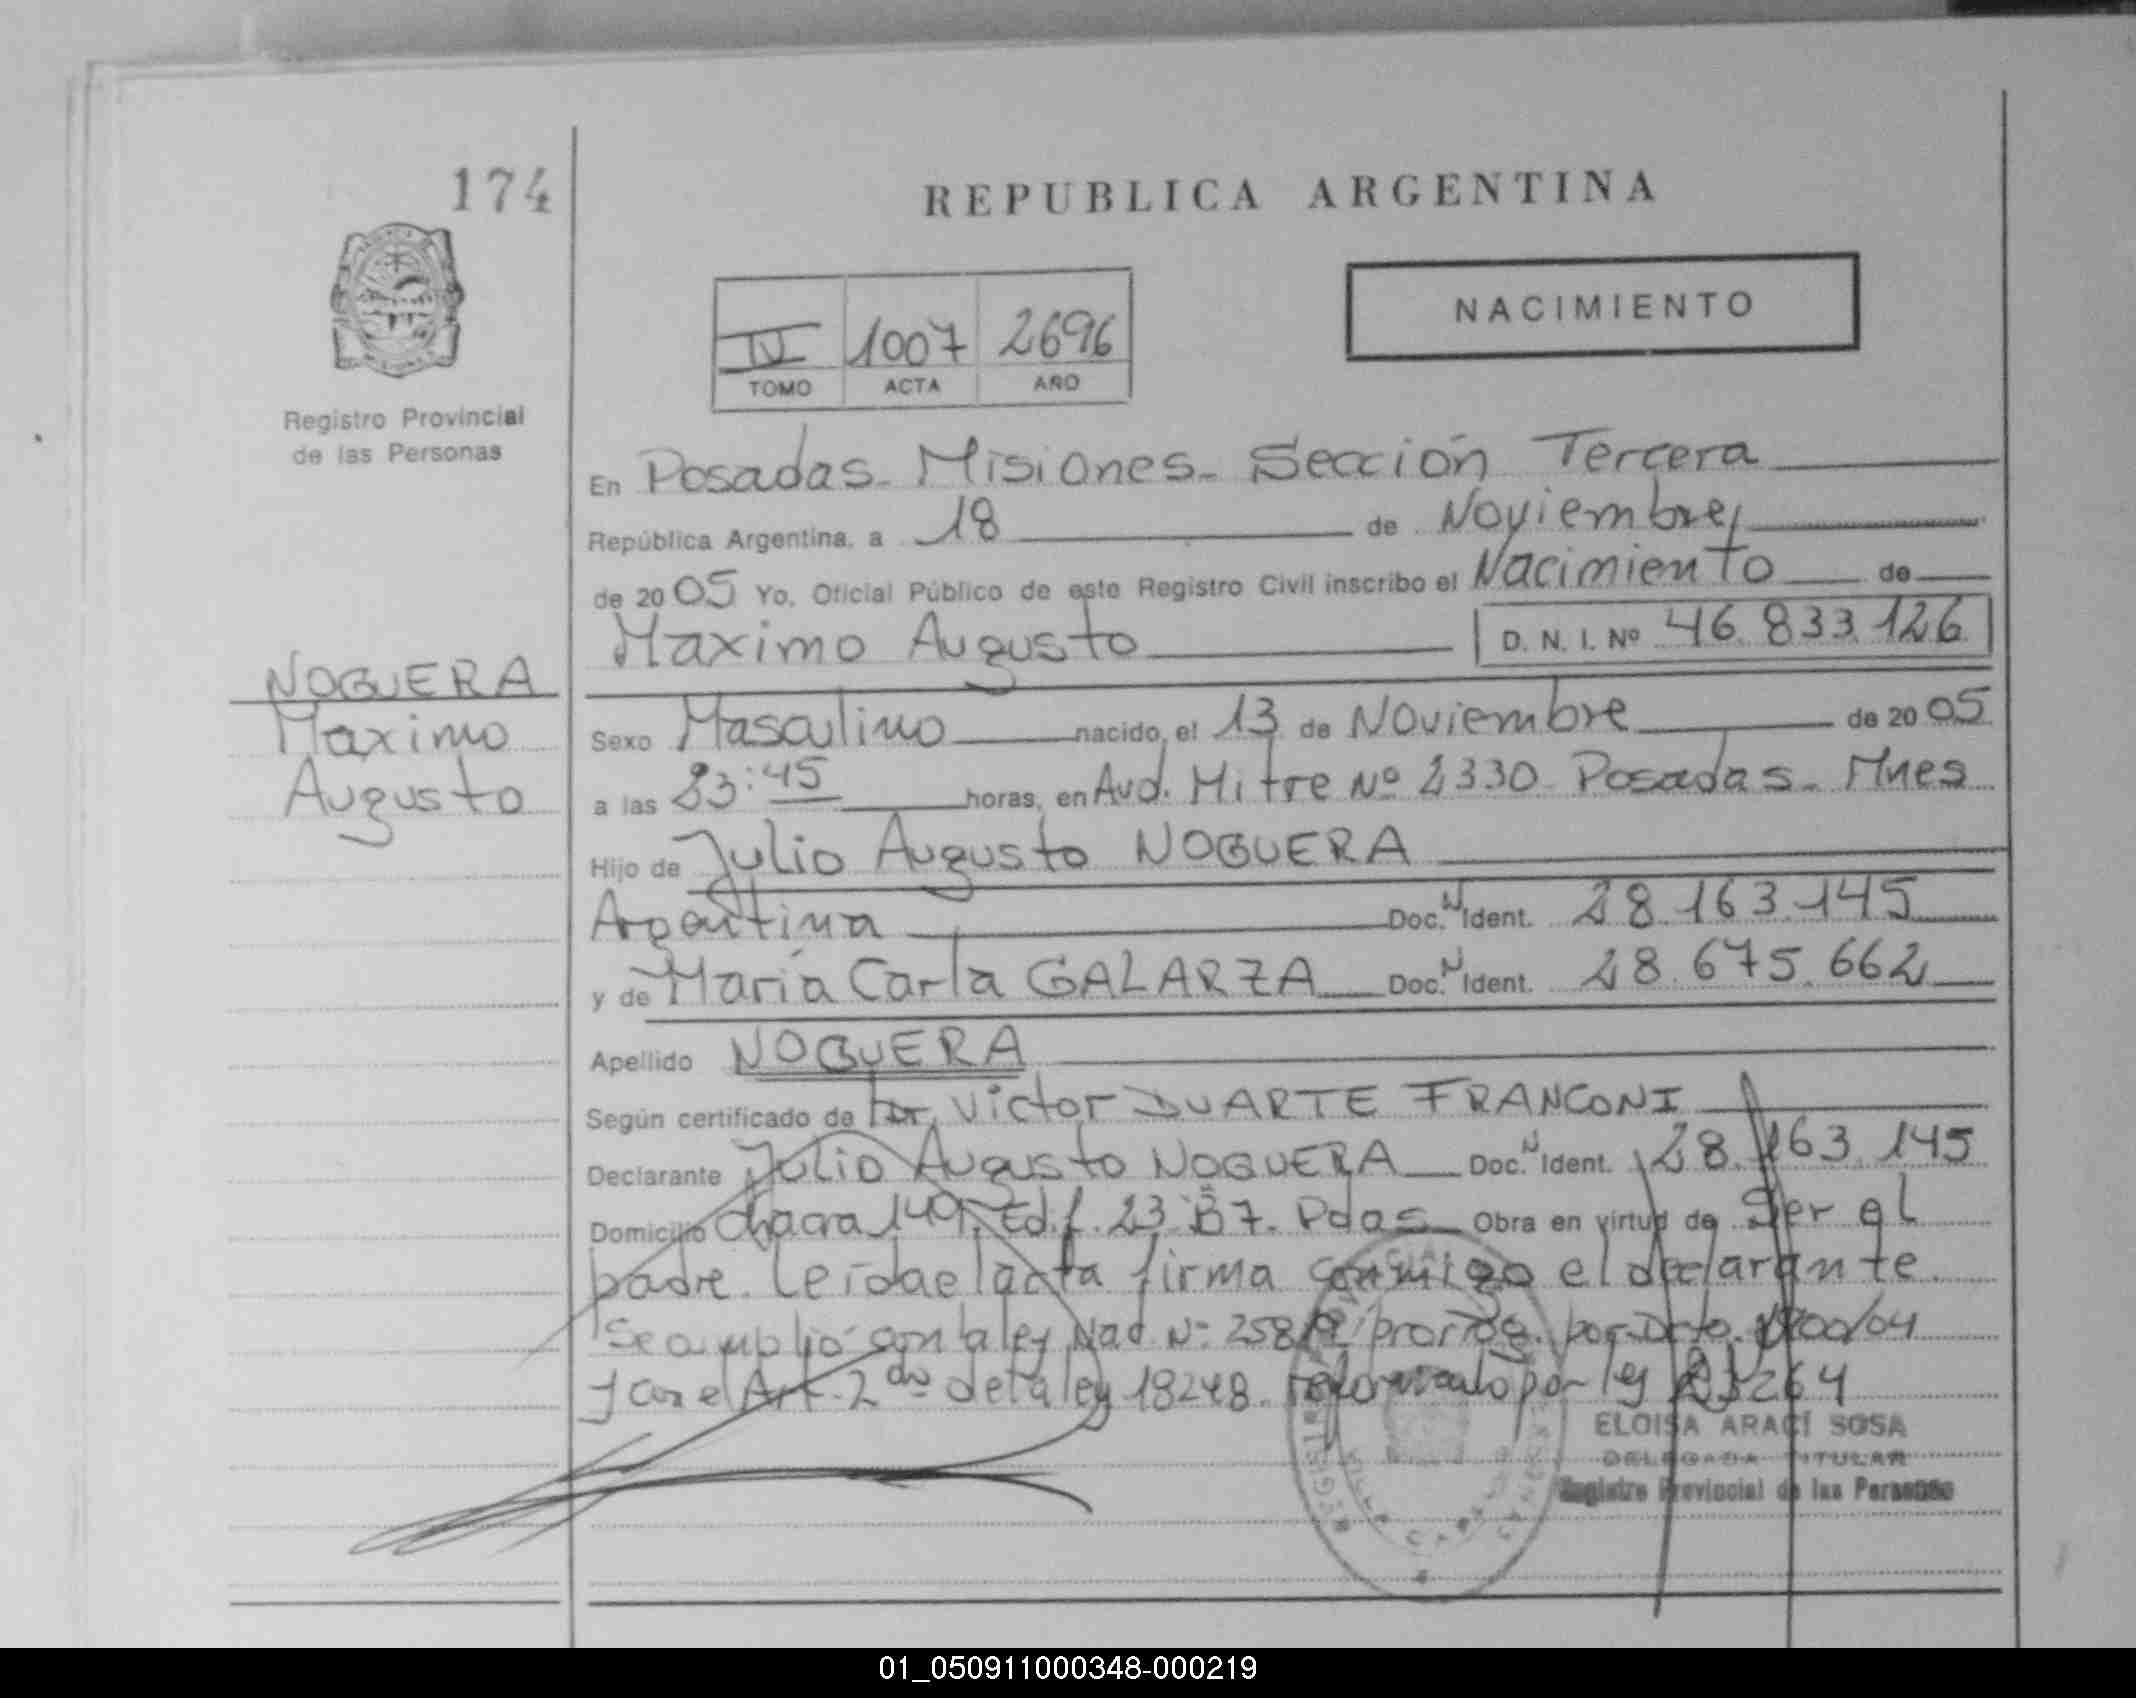 174
REPUBLICA ARGENTINA
NACIMIENTO
IV 1007 2696
TOMO ACTA AÑO
Registro Provincial
de las Personas
En Posadas - Misiones - Sección Tercera
República Argentina, a 18 de Noviembre
de 2005 Yo, Oficial Público de este Registro Civil inscribo el Nacimiento de
Maximo Augusto D. N. I. Nº 46.833.126
NOGUERA
Maximo
Augusto
Sexo Masculino nacido, el 13 de Noviembre de 2005
a las 23:45 horas, en Avd. Mitre Nº 2330 Posadas - Mnes
Hijo de Julio Augusto NOGUERA
Argentina Doc. N Ident. 28.163.145
y de María Carla GALARZA Doc. N Ident. 28.675.662
Apellido NOGUERA
Según certificado de Dr. Victor DUARTE FRANCONI
Declarante Julio Augusto NOGUERA Doc. N Ident. 28.163.145
Domicilio Chacra 149 Edif. 23 "B" 7. Pdas Obra en virtud de Ser el
padre. Leída el acta firma conmigo el declarante.
Se cumplió con la ley Nad Nº 258 por Dcto.
y con el Art. 2do de la ley 18248. por ley 23264
ELOISA ARACÍ SOSA
DELEGADA TITULAR
Registro Provincial de las Personas
01_050911000348-000219